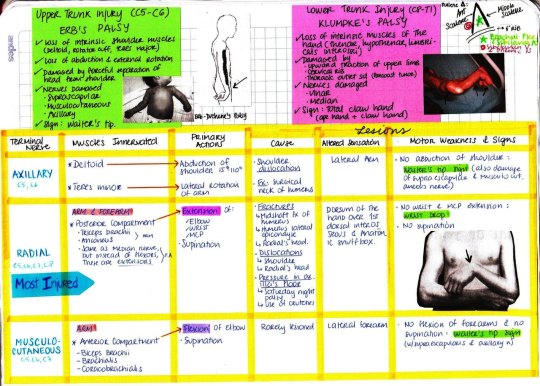 Upper Trunk Injury (C5-C6)
ERB'S PALSY
✓ Loss of intrinsic shoulder muscles
(deltoid, rotator cuff, teres major)
✓ Loss of abduction & external rotation
✓ Damaged by forceful separation of
head from shoulder
✓ Nerves damaged
- Suprascapular
- Musculocutaneous
- Axillary
✓ Sign: Waiter's tip.
Erb-Duchenne's Palsy
Lower Trunk Injury (C8-T1)
KLUMPKE'S PALSY
✓ Loss of intrinsic muscles of the
hand (thenar, hypothenar, lumbricals
interossei)
✓ Damaged by
- upward traction of upper limb
- Cervical rib
- Thoracic outlet sd (Pancoast tumor)
✓ Nerves damaged
- Ulnar
- Median
✓ Sign: Total claw hand
(ape hand + claw hand)
Ant
Scalene
Middle
Scalene
1st Rib
Lesions
Terminal Nerve
Muscles Innervated
Primary Actions
Cause
Altered Sensation
Motor Weakness & Signs
AXILLARY
C5, C6
* Deltoid
* Teres minor
Abduction of
shoulder
Lateral Rotation
of arm
* Shoulder
dislocation
* Fx: Surgical
neck of humerus
Lateral Arm
- No abduction of shoulder:
Waiter's tip sign (also damage
of suprascapular & musculocut.
nerve)
RADIAL
C5, C6, C7, C8
Most Injured
ARM & FOREARM
* Posterior Compartment
- Triceps brachii
- Anconeus
Arm
- Same as median nerve,
but instead of flexors,
these are extensors
FA
Extension of:
- Elbow
- Wrist
- MCP
- Supination
* Fractures
↳ Midshaft fx of
humerus
↳ Humerus lateral
epicondyle
↳ Radial's head
* Dislocations
↳ Shoulder
↳ Radial's head
* Pressure in
floor
↳ Saturday night
palsy
↳ Use of crutches
Dorsum of
the hand over 1st
dorsal interosseous
& anatomic
snuffbox
- No wrist & MCP extension:
Wrist drop
- No supination
MUSCULO-
CUTANEOUS
C5, C6, C7
ARM
* Anterior Compartment
- Biceps Brachii
- Brachialis
- Coracobrachialis
Flexion of elbow
- Supination
Rarely lesioned
Lateral forearm
- No flexion of forearms & no
supination: Waiter's tip sign
(w/suprascapulous & axillary n)